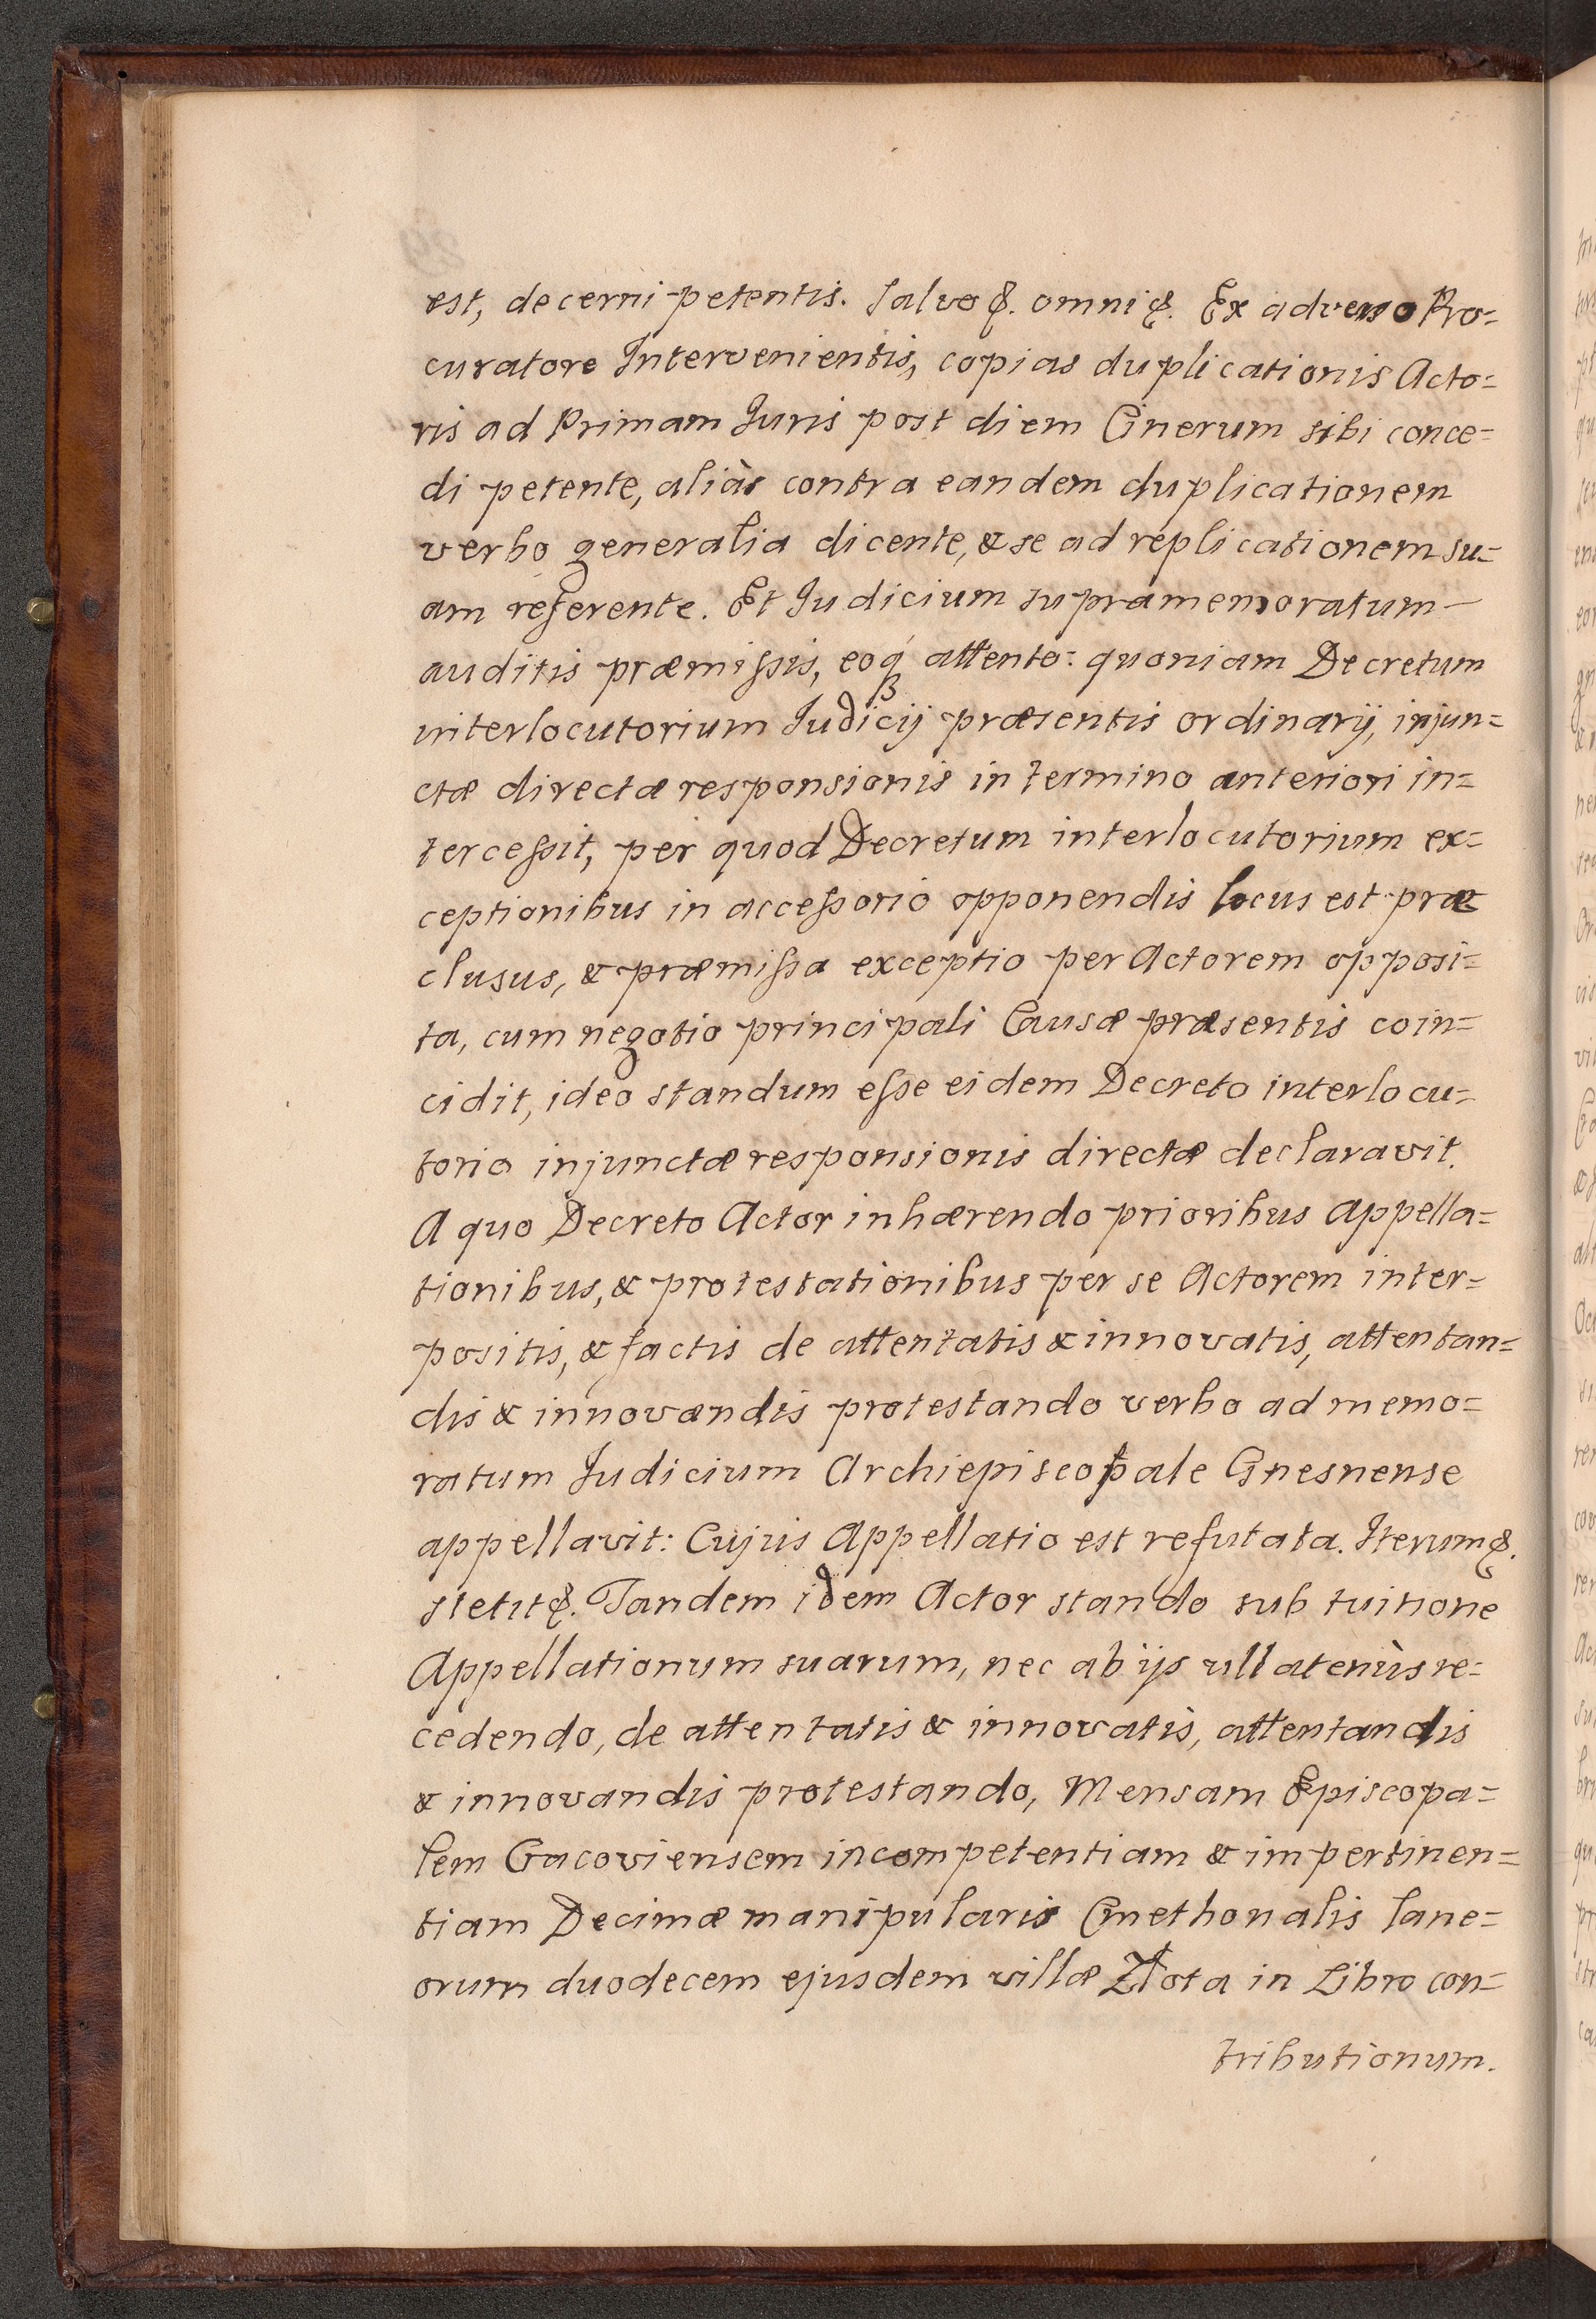 est, decerni petentis. Salvo &. omni &. Ex adverso Pro=
curatore Intervenientis, copias duplicationis Acto=
ris ad Primam Juris post diem Cinerum sibi conce=
di petente, aliàs contra eandem duplicationem
verbo generalia dicente, & se ad replicationem su=
am referente. Et Judicium supramemoratum —
auditis præmissis, eoq́ꝫ attento: quoniam Decretum
interlocutorium Judicij præsentis ordinarij, injun=
ctæ directæ responsionis in termino anteriori in=
tercessit, per quod Decretum interlocutorium ex=
ceptionibus in accessorio opponendis locus est præ=
clusus, & præmissa exceptio per Actorem opposi=
ta, cum negotio principali Causæ præsentis coin=
cidit, ideo standum esse eidem Decreto interlocu=
torio injunctæ responsionis directæ declaravit.
A quo Decreto Actor inhærendo prioribus Appella=
tionibus, & protestationibus per se Actorem inter=
positis, & factis de attentatis & innovatis, attentan=
dis & innovandis protestando verbo ad memo=
ratum Judicium Archiepiscopale Gnesnense
appellavit: Cujus Appellatio est refutata. Iterum &.
stetit &. Tandem idem Actor stando sub tuitione
Appellationum suarum, nec ab ijs ullatenùs re=
cedendo, de attentatis & innovatis, attentandis
& innovandis protestando, Mensam Episcopa=
lem Cracoviensem incompetentiam & impertinen=
tiam Decimæ manipularis Cmethonalis lane=
orum duodecem ejusdem villæ Złota in Libro con=
tributionum.